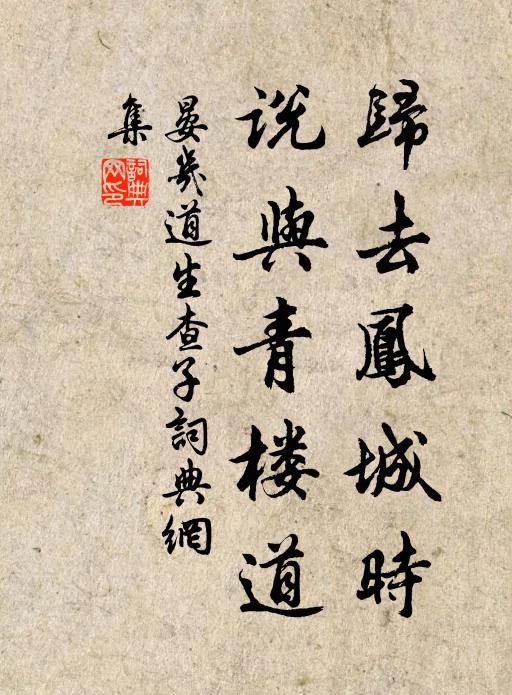 歸去鳳城時
說與青楼道
晏幾道生查子詞典網
集
詞典網印